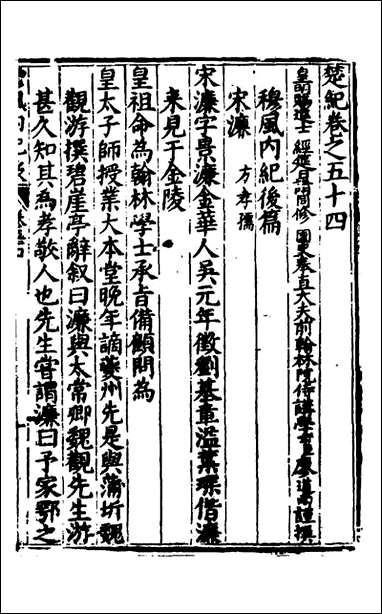 楚紀卷之五十四
皇明賜進士 經筵日講官修 國史奉直大夫前翰林院侍講學士廖道南謹撰
穆風内紀後篇
宋濂 方孝孺
宋濂字景濂金華人吳元年徵劉基章溢葉琛偕濂
来見于金陵
皇祖命為翰林學士承旨備顧問為
皇太子師授業大本堂晚年謫夔州先是與蒲圻魏
觀游撰碧崖亭辭叙曰濂與太常卿魏觀先生游
甚久知其為孝敬人也先生嘗謂濂曰予家鄂之